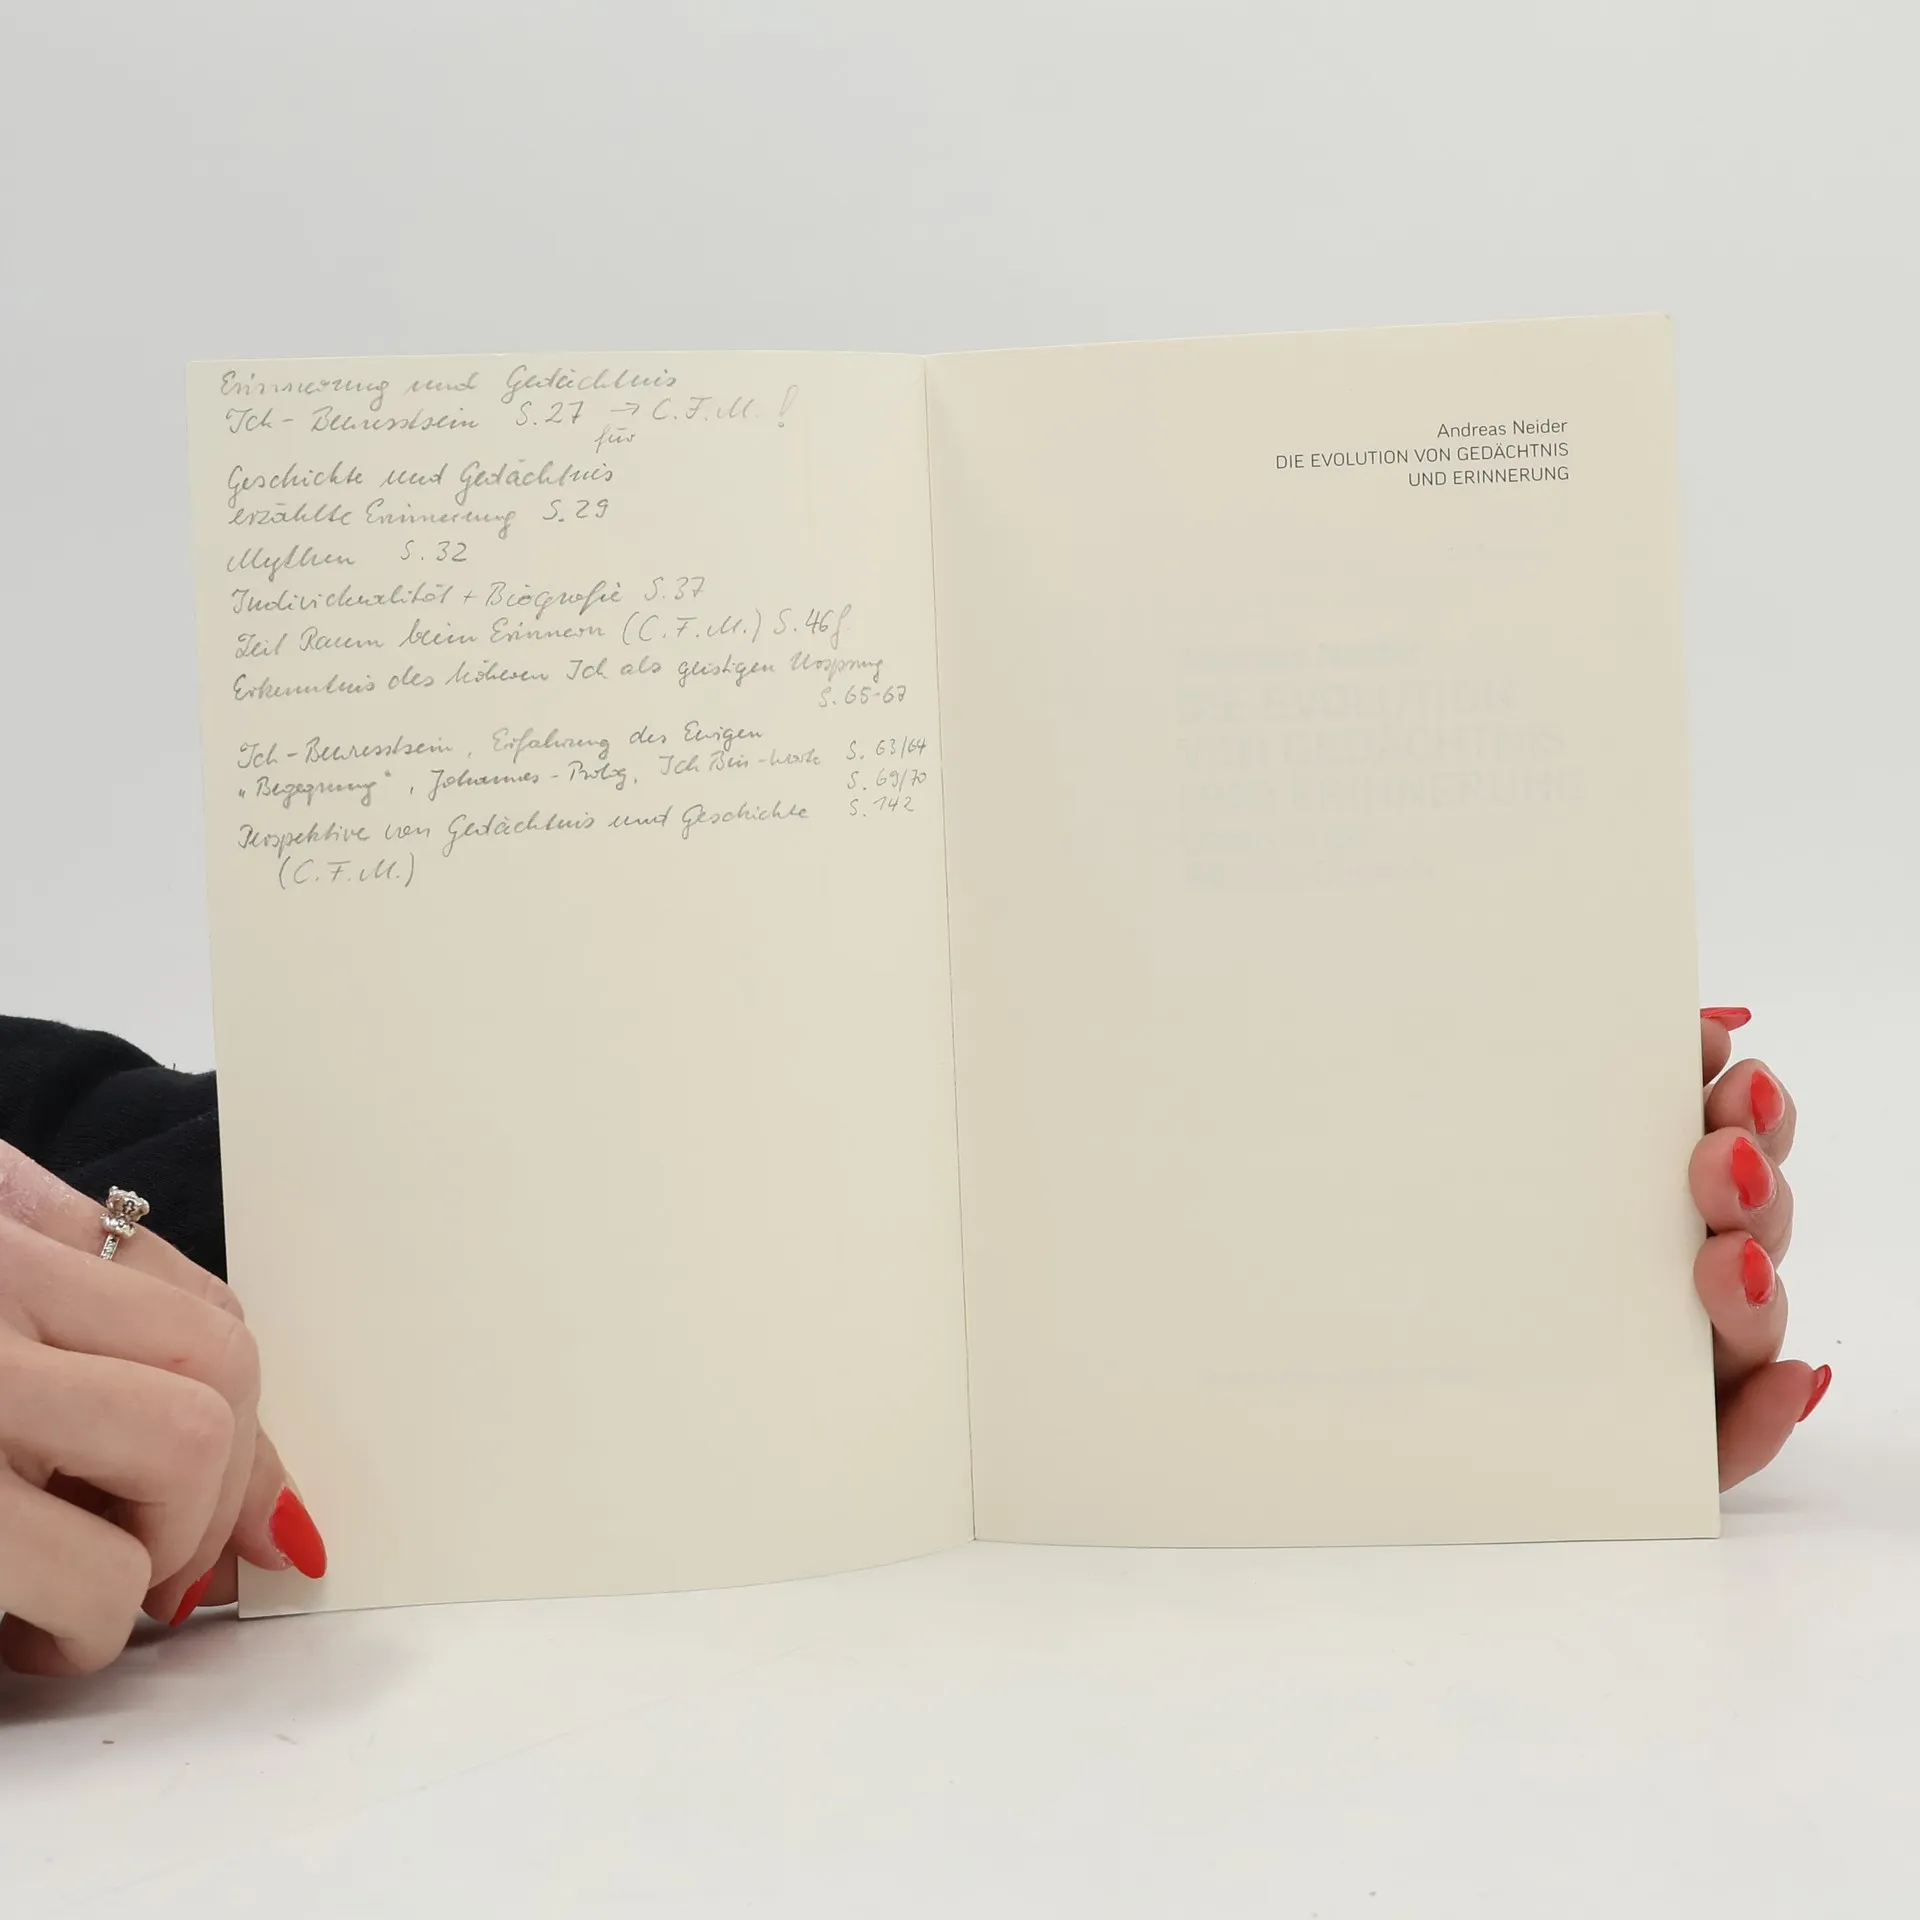 Erinnerung und Gedächtnis
Ich-Bewusstsein S.27 → C.F.M.!
für
Geschichte und Gedächtnis
erzählte Erinnerung S.29
Mythen S.32
Individualität + Biografie S.37
Zeit Raum beim Erinnern (C.F.M.) S.46f
Erkenntnis des höheren Ich als geistigen Ursprung
S.65-67
Ich-Bewusstsein, Erfahrung des Ewigen S. 63/64
"Begegnung", Johannes-Prolog, Ich Bin-Worte S. 69/70
Perspektive von Gedächtnis und Geschichte S. 142
(C.F.M.)
Andreas Neider
DIE EVOLUTION VON GEDÄCHTNIS
UND ERINNERUNG